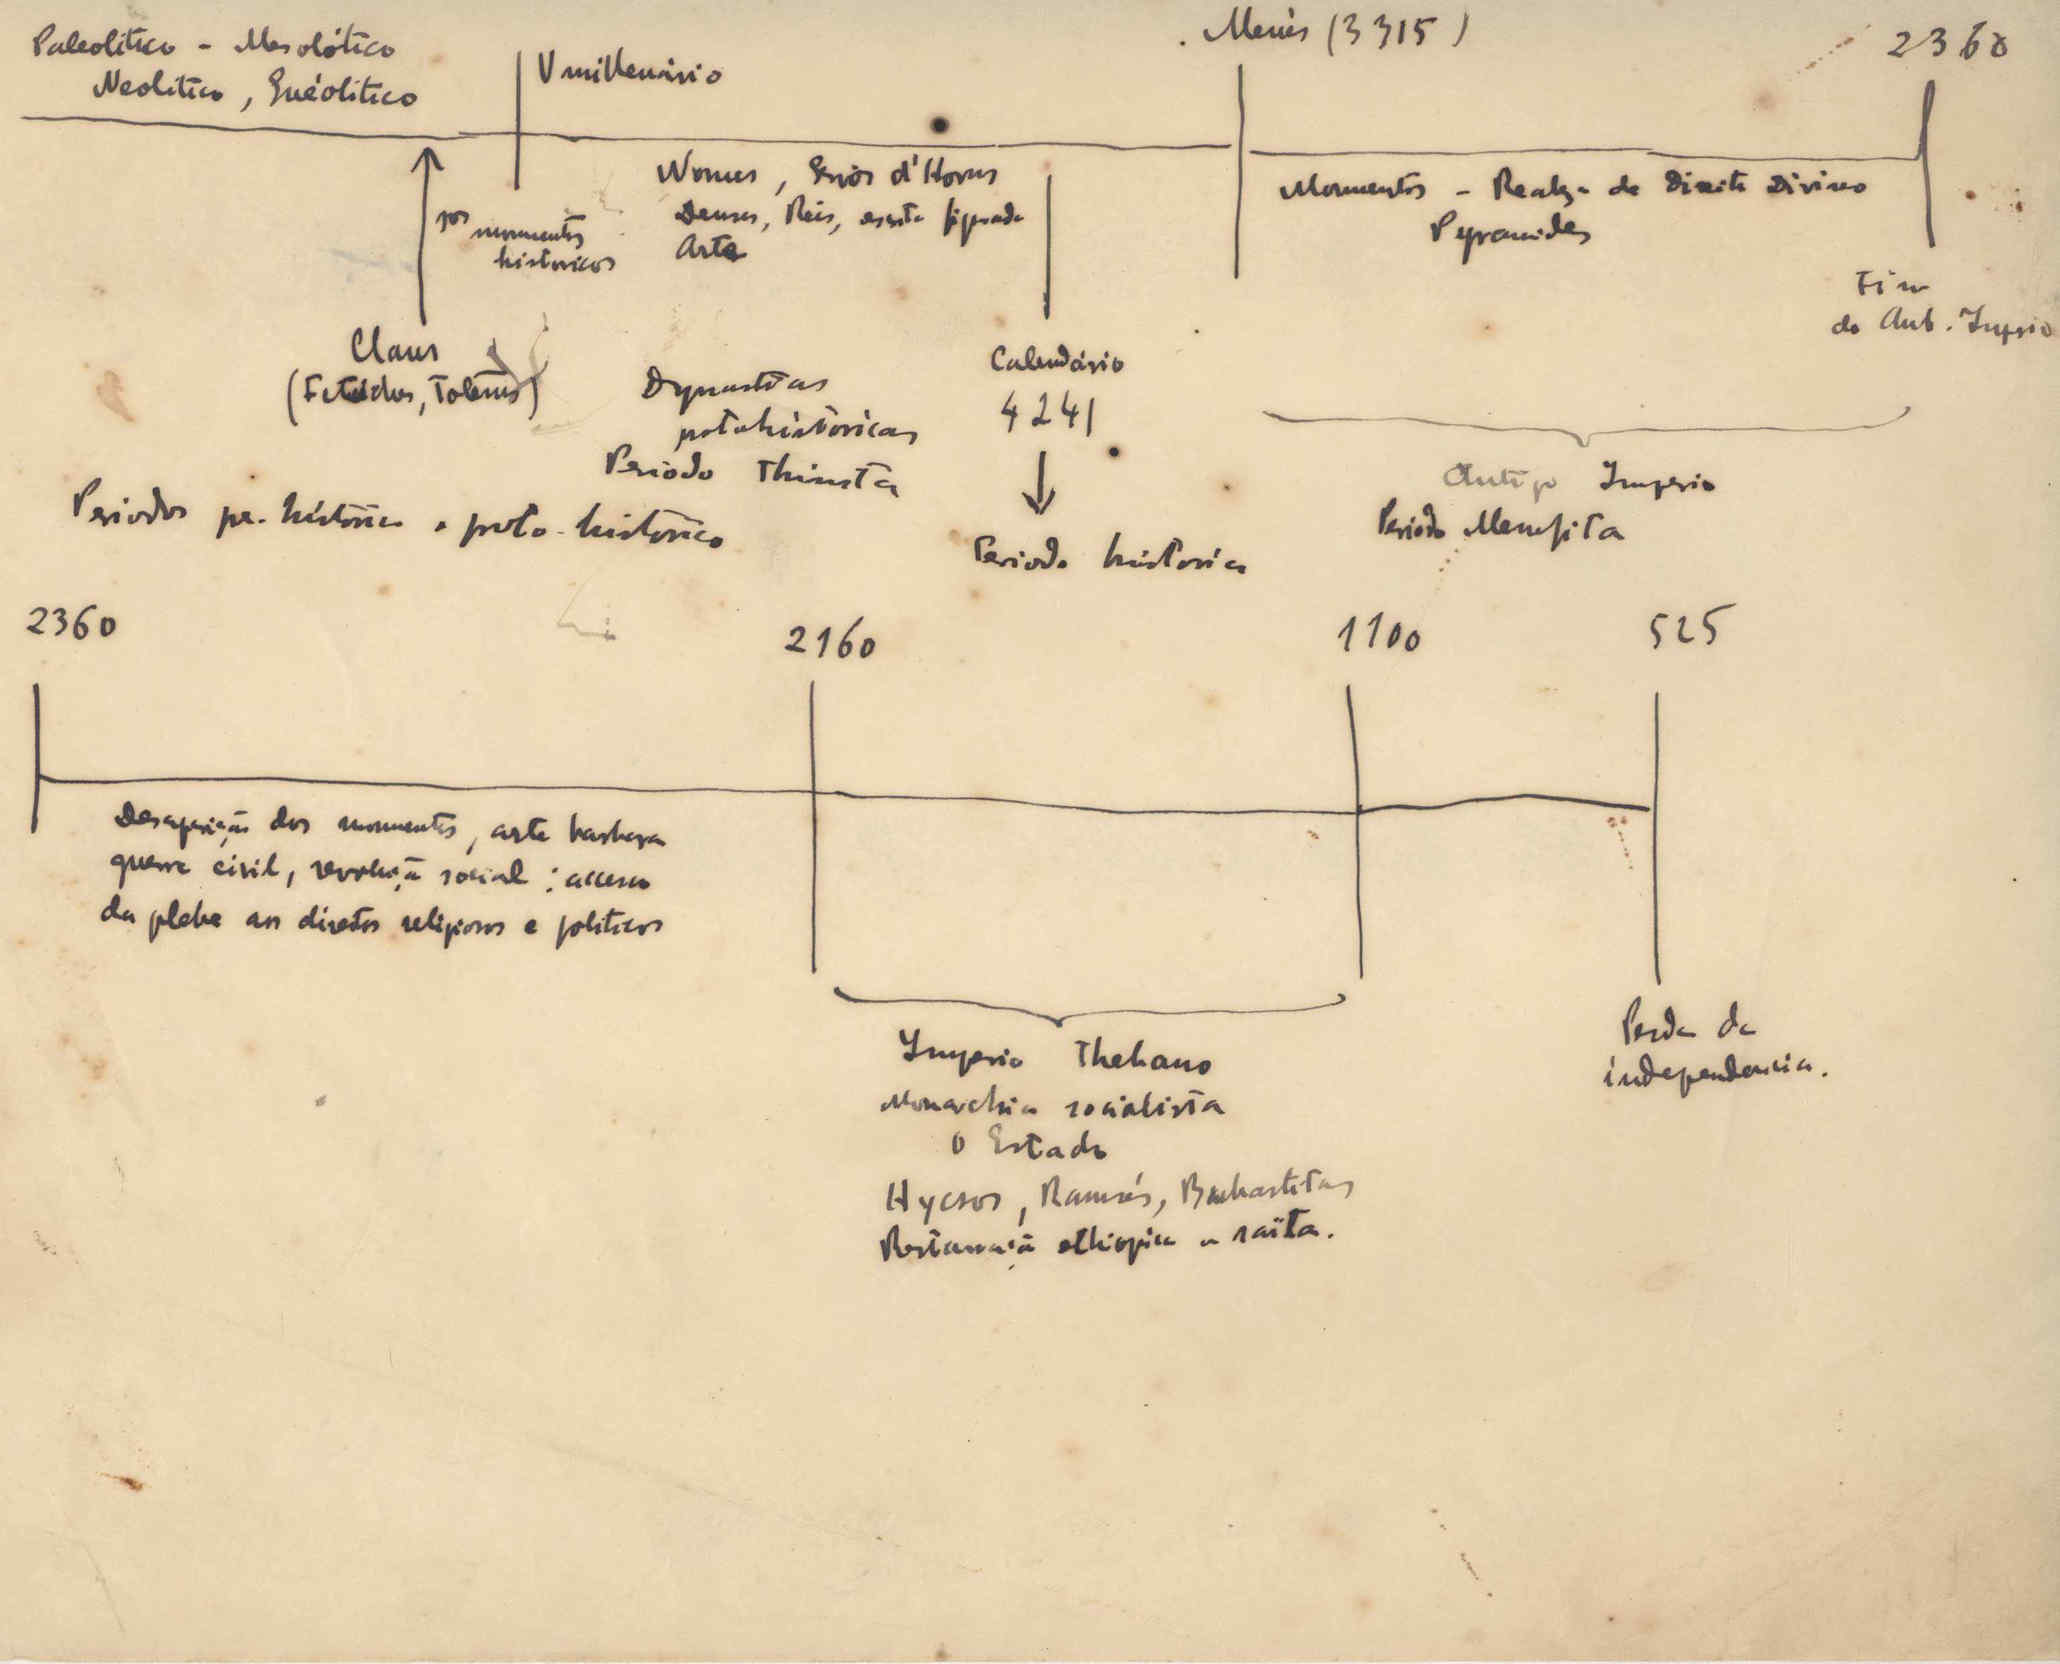 Paleolitico - Mesolótico
Neolitico, Enéolitico
V millenário
Menés (3315)
2360
Nomes, d'Horus
Deuses, Reis, figurada
Arte
monumentos
historicos
Monumentos - Realeza de Direito Divino
Pyramides
Fim
do Ant. Imperio
Clans
(Totems)
Dynastias
protohistoricas
Periodo Thinita
Calendário
4241
Periodo historico
Antigo Imperio
Periodo Memfita
Periodos pre-historico e proto-historico
2360
2160
1100
525
Desaparição dos monumentos, arte barbara
guerra civil, revolução social: accesso
da plebe aos direitos religiosos e politicos
Imperio Thebano
Monarchia socialista
O Estado
Hycsos, Ramsés, Bubastitas
Restauração ethiopica e saïta.
Perda da
independencia.